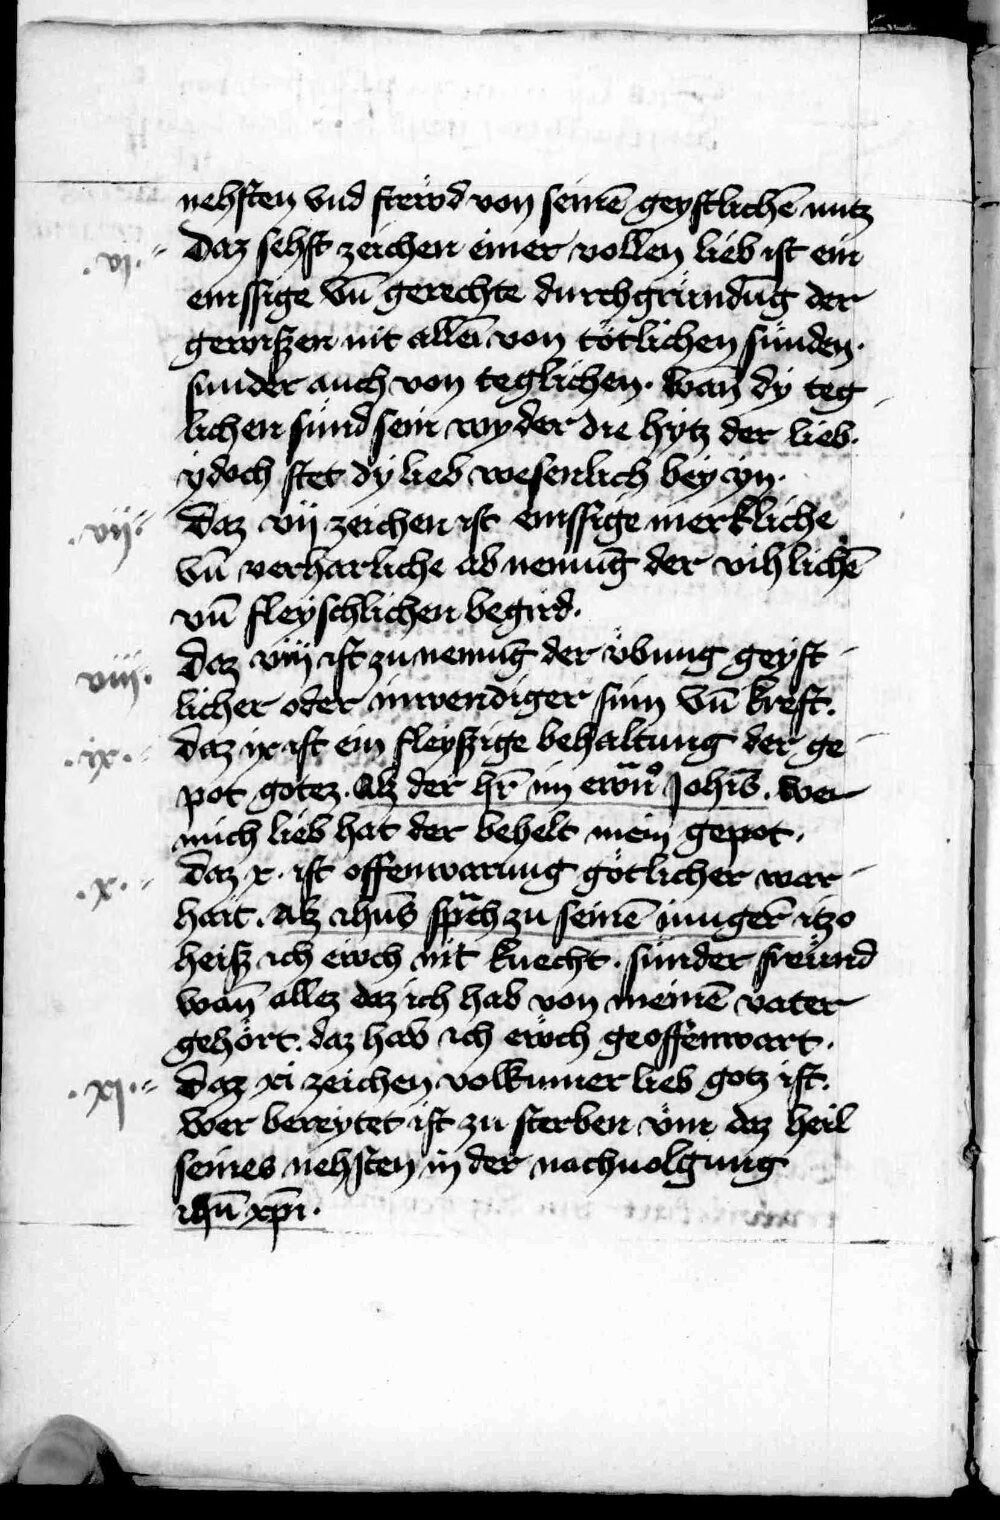 nehsten vnd frewd von seinē geystlichē nutz
·vi· Daz sehst zeichen einer vollen lieb ist ein
emssige vn̄ gerechte durchgründūg der
gewissen nit allei᷑ von tötlichen sünden·
sunder auch von teglichen· wan̄ dy teg
lichen sünd sein wyder die hytz der lieb·
ydoch stet dy lieb wesenlich bey yn·
·vij· Daz vij zeichen ist emssige merkliche
vn̄ verharliche ab nemūg der vihlichē
vn̄ fleyschlichen begird·
viij· Daz viij ist zu nemūg der vbung geyst
licher oder inwendiger sinn vn̄ kreft·
·ix· Daz ix ist ein fleyszige behaltung der ge
pot gotez· Alz der hr̄ im ewāᵒ Johīs· wer
mich lieb hat der behelt mein gepot·
·x· Daz x· ist offenwarung götlicher war
hait· Alz ihūs sp̄ch zu seinē iungerē itzo
heisz ich ewch nit knecht· sunder freund
wan̄ allez daz ich hab von meinē vater
gehört· daz hab ich ewch geoffenwart·
·xi· Daz xi zeichen volkumer lieb gotz ist·
wer bereytet ist zu sterben vm daz heil
seines nehsten in der nachuolgung
ihū xp̄i·